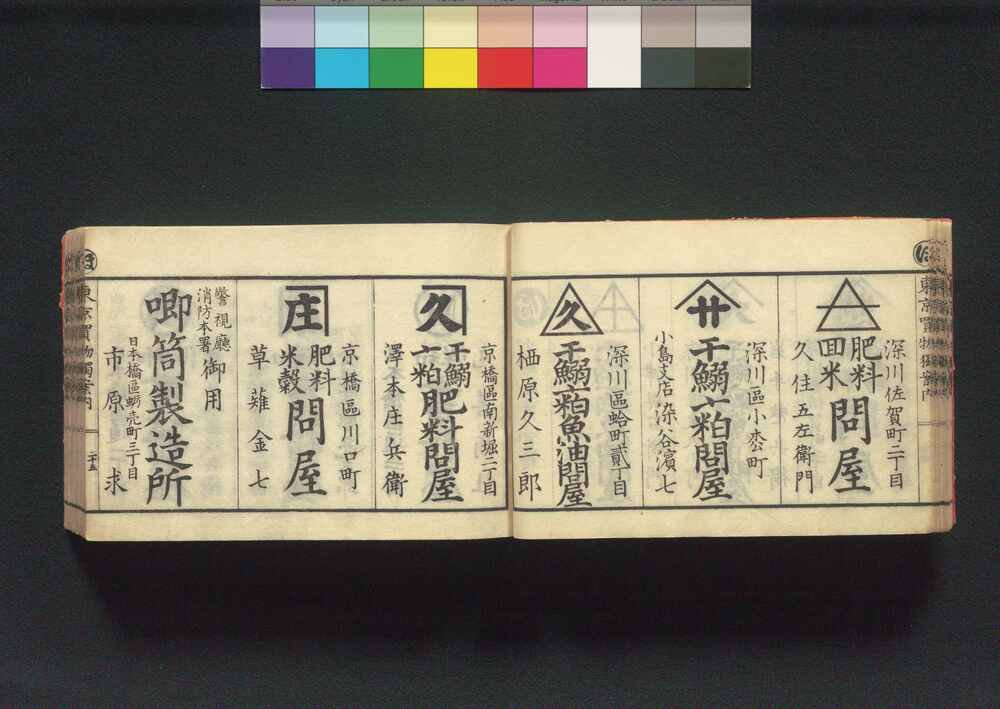 ほ
東京買物獨案内
深川佐賀町二丁目
肥料
回米
問屋
久住五左衛門
廾
深川區小松町
干鰯〆粕問屋
小島支店 染谷濱七
久
深川區蛤町貳丁目
干鰯〆粕魚油問屋
栖原久三郎
久
京橋區南新堀二丁目
干鰯
〆粕
肥料問屋
澤本庄兵衛
庄
京橋區川口町
肥料
米穀
問屋
草薙金七
警視廳
消防本署
御用
喞筒製造所
日本橋區蛎売町三丁目
市原求
ほ
東京買物獨案内
二十五